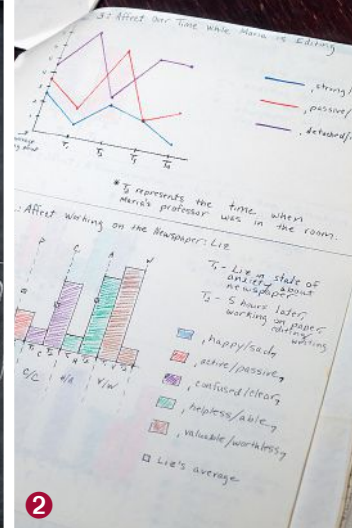 3: Affect Over Time While Maria is Editing
, strong/
, passive/
, detached/
average
T₁
T₂
T₃
T₄
* T₃ represents the time when
Maria's professor was in the room.
: Affect Working on the Newspaper: Liz
T₁ - Liz in state of
anxiety about
newspaper
T₂ - 5 hours later,
working on paper,
editing,
writing
C/C
H/A
V/W
, happy/sad,
, active/passive,
, confused/clear,
, helpless/able,
, valuable/worthless,
□ Liz's average
2